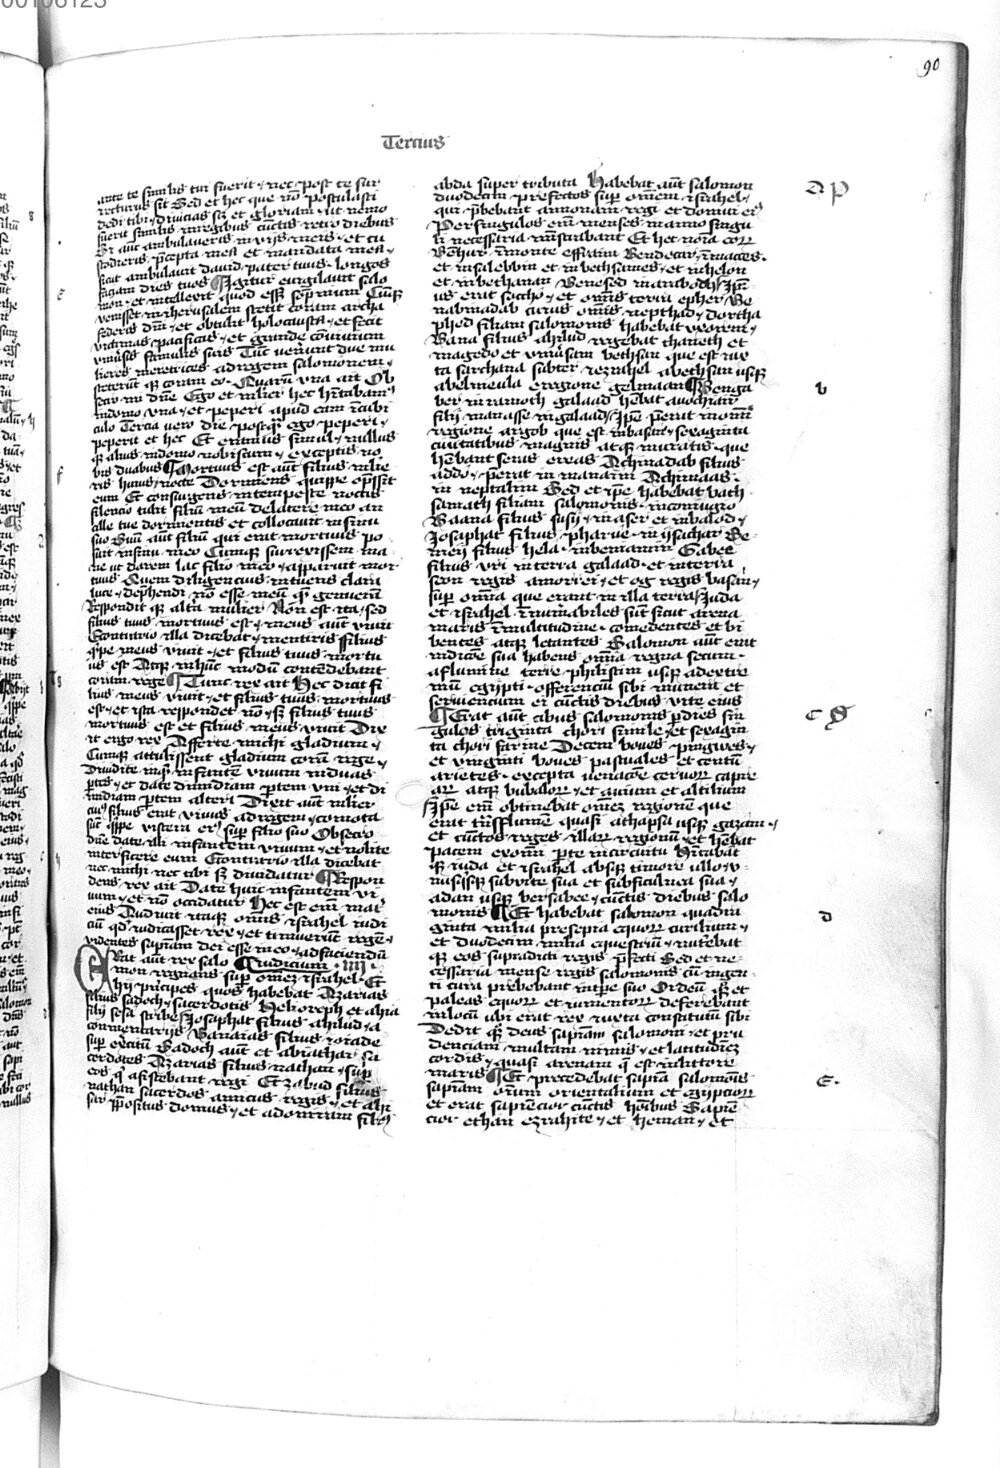 90
Tercius
ante te similis tui fuerit nec post te sur
recturus sit Sed et hec que nō postulasti
dedi tibi diuicias sc̄ et gloriam ut nemo
fuerit similis in regibus cunctis retro diebus
Si aut̄ ambulaueris in vijs meis et cu
stodieris p̄cepta mea et mandata mea
sicut ambulauit dauid pater tuus longos
faciam dies tuos Igitur euigilauit salo
mon et intellexit quod ess; sōpnium Cūq;
venisset in iherusalem stetit coram archa
federis dn̄i et obtulit holocausta et fecit
victimas pacificas et grande conuiuium
vniu̓sis famulis suis Tūc venerunt due mu
lieres meretrices ad regem salomonem
steterūt q; coram eo Quarū vna ait Ob
secro mi dn̄e Ego et mulier hec h̄itabam̓
in domo vna et peperi apud eam in cubi
culo Tercia vero die postq̄ ego peperi
peperit et hec Et eramus simul nullus
q; alius in domo nobiscum exceptis no
bis duabus Mortuus est aut̄ filius mulie
ris huius nocte Dormiens quippe opp̄ssit
eum Et consurgens intempeste noctis
silencio tulit filiū meū de latere meo an
cille tue dormientis et collocauit in sinu
suo Suū aut̄ filiū qui erat mortuus po
suit in sinu meo Cumq; surrexissem ma
ne ut darem lac filio meo apparuit mor
tuus Quem diligencius intuens clara
luce dep̄hendi nō esse meū q̄ genueram
Respondit q; altera mulier Non est ita sed
filius tuus mortuus est meus aut̄ viuit
Econtrario illa dicebat mentiris filius
q̄pe meus viuit et filius tuus mortu
us est Atq; in hūc modū contēdebant
coram rege Tunc rex ait Hec dicit fi
lius meus viuit et filius tuus mortuus
est et ista respondet nō s; filius tuus
mortuus est et filius meus viuit Dix
it ergo rex Afferte michi gladium
Cumq; attulissent gladium corā rege
Diuidite inq̄t infantē viuum in duas
p̄tes et date dimidiam p̄tem vni et di
midiam p̄tem alteri Dixit aut̄ mulier
cui̓ filius erat viuus ad regem cōmota
sūt q̄ppe viscera ei̓ sup̄ filio suo Obsecro
dn̄e date illi infantem viuum et nolite
interficere eum Econtrario illa dicebat
nec michi nec tibi s; diuidatur Respon
dens rex ait Date huic infantem vi
uum et nō occidatur Hec est em̄ mat̓
eius Audiuit itaq; om̄is israhel iudi
ciū qd̓ iudicasset rex et timuerūt regē
videntes sapiam dei esse in eo ad faciendū
Erat aut̄ rex salo Iudicium IIII
mon regnans sup̄ om̄ez israhel Et
hij principes quos habebat Azarias
filius sadoch sacerdotis Helioreph et ahia
filij sesa scribe Josaphat filius ahilud a
cōmentarijs Banaias filius ioiade
sup̄ ex̓citū Sadoch aut̄ et abiathar sa
cerdotes Azarias filius nathan sup̄
eos q̄ assistebant regi Et zabud filius
nathan sacerdos amicus regis et ahi
sar p̄positus domus et adoniram fili̓
abda super tributa Habebat aut̄ salomon
duodecim prefectos sup̄ om̄em israhel
qui p̄bebant annonam regi et domui ei̓
Per singulos em̄ menses in anno singu
li necessaria mīstrabant Et hec noīa eorū
Benhur in monte effraim Bendecar in macces
et in salebbin et in bethsames et in helon
et in bethanan Benesed in araboth Ip̄i
us erat soccho et omīs terra epher Be
nabinadab cuius omīs nepthad dortha
phed filiam salomonis habebat vxorem
Bana filius ahilud regebat thaneth et
magedo et vniu̓sam bethsan que est iux
ta sarthana subter iezrahel a bethsan usq;
abelmeula e regione gelmaan Benga
ber in ramoth galaad h̄ebat auothiair
filij manasse in galaad Ip̄e p̄erat in om̄i
regione argob que est in basan sexaginta
ciuitatibus magnis atq; muratis que
h̄ebant seras ereas Achinadab filius
addo p̄erat in manaim Achimaas
in neptalim Sed et ip̄e habebat bath
samath filiam salomonis in coniugio
Baana filius susij in aser et in balod
Josaphat filius pharue in ijsachar Se
meij filius hela in beniamin Gabee
filius vri in terra galaad et in terra
seon regis amorrei et og regis basan
sup̄ om̄ia que erant in illa terra Juda
et israhel īnumabiles sunt sicut arena
maris in multitudine comedentes et bi
bentes atq; letantes Salomon aut̄ erat
in dicōe sua habens om̄ia regna secum
a flumine terre philistim usq; ad extre
mū egypti offerenciū sibi munera et
seruiencium ei cūctis diebus vite eius
Erat aut̄ cibus salomonis p̄ dies sin
gulos triginta chori simile et sexagin
ta chori farine Decem boues pingwes
et viginti boues pascuales et centū
arietes excepta venacōe ceruorū capre
arū atq; bubalorū et auium et altilium
Ip̄e em̄ obtinebat om̄ez regionē que
erat trās flumē quasi a thapsa usq; gazam
et cunctos reges illarū regionū et h̄ebat
pacem ex om̄i p̄te in circuitu H̄itabat
q; iuda et israhel absq; timore ullo v
nusq̄sq; sub vite sua et sub ficulnea sua
a dan usq; bersabee cunctis diebus salo
monis Et habebat salomon quadra
ginta milia presepia equorū curilium
et duodecim milia equestriū nutrebāt
q; eos supradicti regis p̄fecti Sed et ne
cessaria mense regis salomonis cū ingen
ti cura prebebant in tp̄e suo Ordeū q; et
paleas equorū et iumentorū deferebant
in locū ubi erat rex iuxta constitutū sibi
Dedit q; deus sapiam salomoni et pru
denciam multam nimis et latitudīez
cordis quasi arenam q̄ est in littore
maris Et precedebat sapia salomōis
sapiam om̄ium orientalium et egypciorū
et erat sapiencior cūctis hoībus Sapiē
cior ethan ezrahite et heman et
b
c
d
E